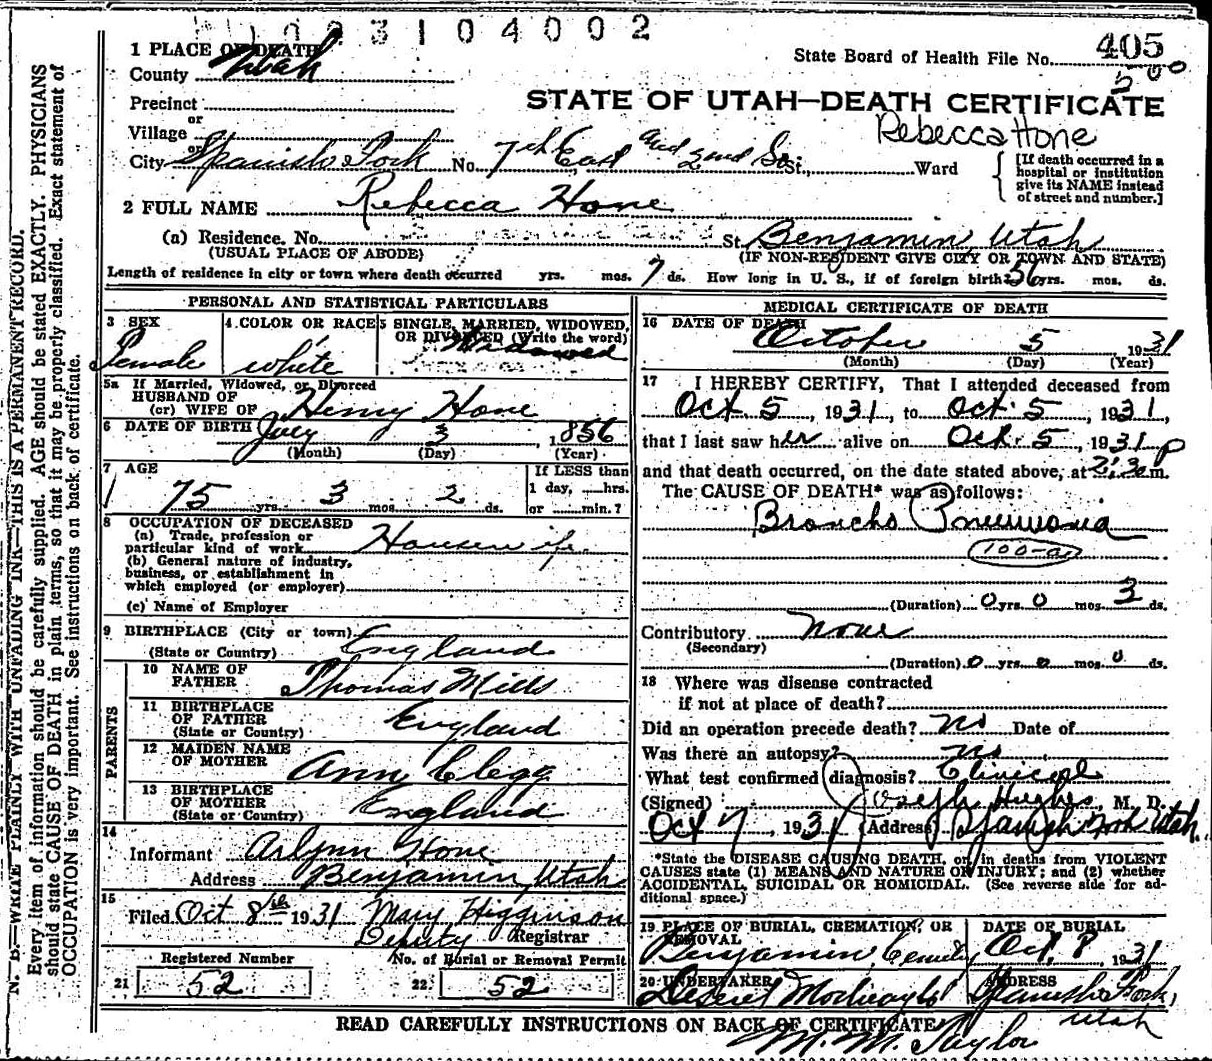 N. B.—WRITE PLAINLY WITH UNFADING INK—THIS IS A PERMANENT RECORD.
Every item of information should be carefully supplied. AGE should be stated EXACTLY. PHYSICIANS
should state CAUSE OF DEATH in plain terms, so that it may be properly classified. Exact statement of
OCCUPATION is very important. See instructions on back of certificate.
3104002
1 PLACE OF DEATH
County Utah
State Board of Health File No. 405
500
Precinct
or
Village
or
STATE OF UTAH—DEATH CERTIFICATE
Rebecca Hone
City Spanish Fork No. 7th East and 2nd So. St., Ward
[If death occurred in a
hospital or institution
give its NAME instead
of street and number.]
2 FULL NAME Rebecca Hone
(a) Residence. No. St. Benjamin, Utah
(USUAL PLACE OF ABODE) (IF NON-RESIDENT GIVE CITY OR TOWN AND STATE)
Length of residence in city or town where death occurred yrs. mos. 7 ds. How long in U. S., if of foreign birth? 56 yrs. mos. ds.
PERSONAL AND STATISTICAL PARTICULARS
3 SEX
Female
4 COLOR OR RACE
white
5 SINGLE, MARRIED, WIDOWED,
OR DIVORCED (Write the word)
Widowed
5a If Married, Widowed, or Divorced
HUSBAND OF
(or) WIFE OF Henry Hone
6 DATE OF BIRTH July 3 1856
(Month) (Day) (Year)
7 AGE
75 yrs. 3 mos. 2 ds.
If LESS than
1 day, hrs.
or min.?
8 OCCUPATION OF DECEASED
(a) Trade, profession or
particular kind of work Housewife
(b) General nature of industry,
business, or establishment in
which employed (or employer)
(c) Name of Employer
9 BIRTHPLACE (City or town)
(State or Country) England
PARENTS
10 NAME OF
FATHER Thomas Mills
11 BIRTHPLACE
OF FATHER
(State or Country) England
12 MAIDEN NAME
OF MOTHER Ann Clegg
13 BIRTHPLACE
OF MOTHER
(State or Country) England
14
Informant Arlynn Hone
Address Benjamin, Utah
15
Filed Oct 8th 1931 Mary Higginson
Deputy Registrar
Registered Number No. of Burial or Removal Permit
21 52 22 52
MEDICAL CERTIFICATE OF DEATH
16 DATE OF DEATH
October 5 1931
(Month) (Day) (Year)
17 I HEREBY CERTIFY, That I attended deceased from
Oct. 5, 1931, to Oct. 5, 1931,
that I last saw her alive on Oct. 5, 1931
and that death occurred, on the date stated above, at 2:30 p m.
The CAUSE OF DEATH* was as follows:
Broncho Pneumonia
100-a
(Duration) 0 yrs. 0 mos. 3 ds.
Contributory None
(Secondary)
(Duration) 0 yrs. 0 mos. 0 ds.
18 Where was disease contracted
if not at place of death?
Did an operation precede death? no Date of
Was there an autopsy? no
What test confirmed diagnosis? Clinical
(Signed) Joseph Hughes, M. D.
Oct 7, 1931 (Address) Spanish Fork Utah.
*State the DISEASE CAUSING DEATH, or, in deaths from VIOLENT
CAUSES state (1) MEANS AND NATURE OF INJURY; and (2) whether
ACCIDENTAL, SUICIDAL OR HOMICIDAL. (See reverse side for ad-
ditional space.)
19 PLACE OF BURIAL, CREMATION, OR
REMOVAL
Benjamin Cemetery
DATE OF BURIAL
Oct. 8, 1931
20 UNDERTAKER
Deseret Mortuary
ADDRESS
Spanish Fork,
Utah
READ CAREFULLY INSTRUCTIONS ON BACK OF CERTIFICATE
M. M. Taylor